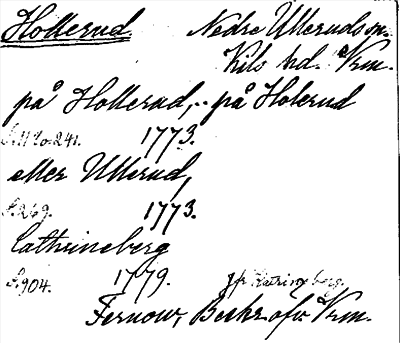 Hollerud. Nedre Ulleruds sn.
Kils hd. Vrm.
på Hollerud, .. på Holerud
1773.
eller Ullerud,
S. 269. 1773.
Cathrineberg
S. 904. 1779. Jfr Katrineberg.
Fernow, Beskr. öfv. Vrm.